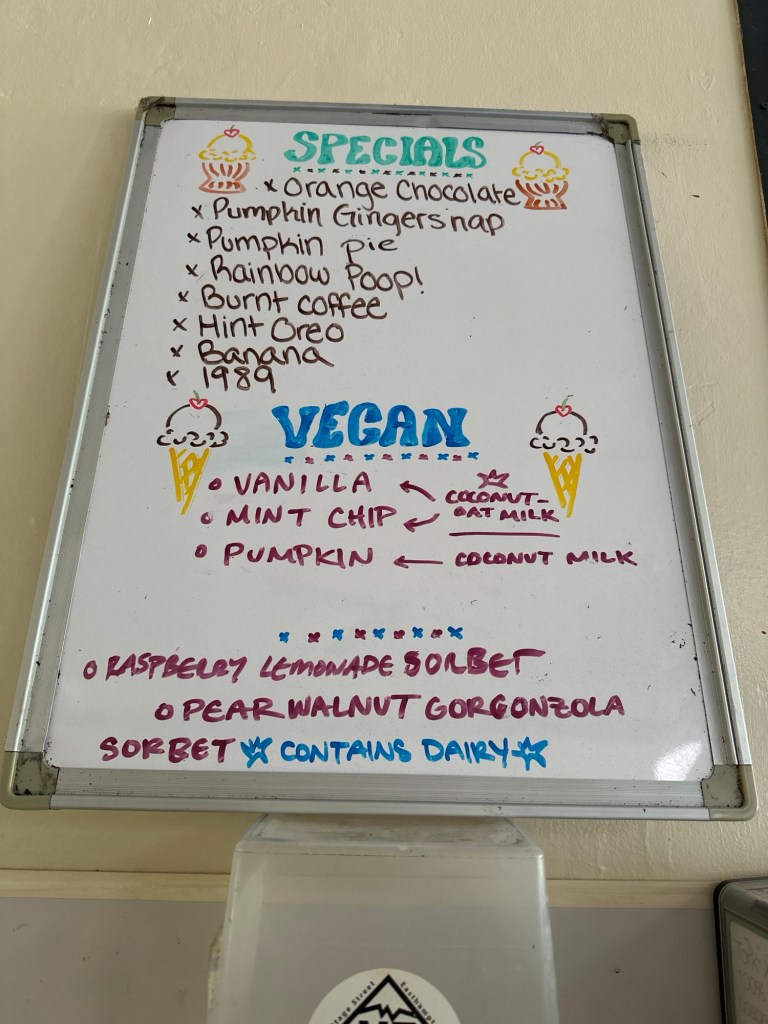 SPECIALS
x Orange Chocolate
x Pumpkin Gingersnap
x Pumpkin pie
x Rainbow Poop!
x Burnt coffee
x Hint Oreo
x Banana
x 1989
VEGAN
o VANILLA
o MINT CHIP
COCONUT-
OAT MILK
o PUMPKIN ← COCONUT MILK
o RASPBERRY LEMONADE SORBET
o PEAR WALNUT GORGONZOLA
SORBET ☆ CONTAINS DAIRY ☆